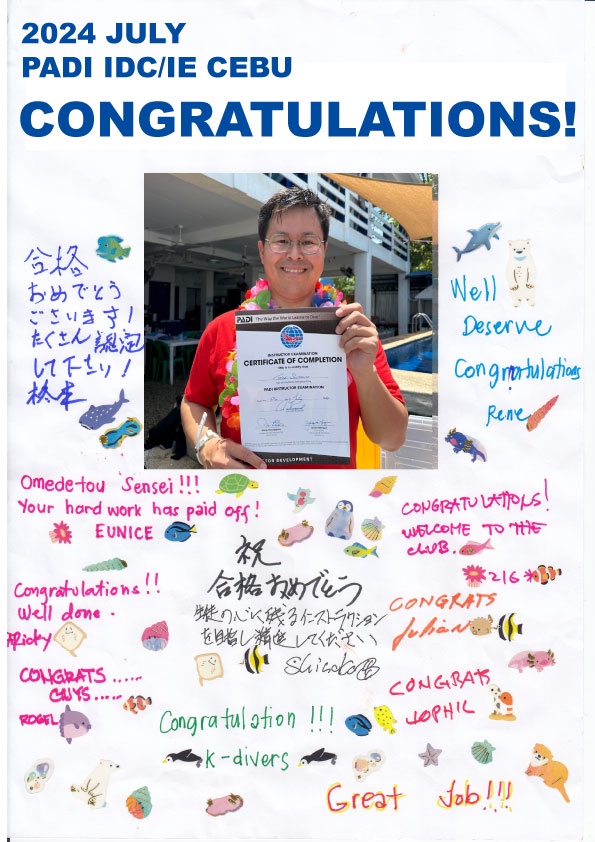 2024 JULY
PADI IDC/IE CEBU
CONGRATULATIONS!
合格
おめでとう
ございます!
たくさん認定
して下さい!
松本
Well
Deserve
Congratulations
Rene
PADI The Way the World Learns to Dive
INSTRUCTOR EXAMINATION
CERTIFICATE OF COMPLETION
PADI INSTRUCTOR EXAMINATION
TOR DEVELOPMENT
Omedetou Sensei!!!
Your hard work has paid off!
EUNICE
CONGRATULATIONS!
WELCOME TO THE
CLUB.
216
祝
合格おめでとう
生徒の心に残るインストラクション
を目指し精進してください
Shizuko
Congratulations!!
Well done.
Ricky
CONGRATS
Julian
CONGRATS.....
GUYS.....
ROGEL
CONGRATS
JOPHIL
Congratulation !!!
K-divers
Great Job!!!